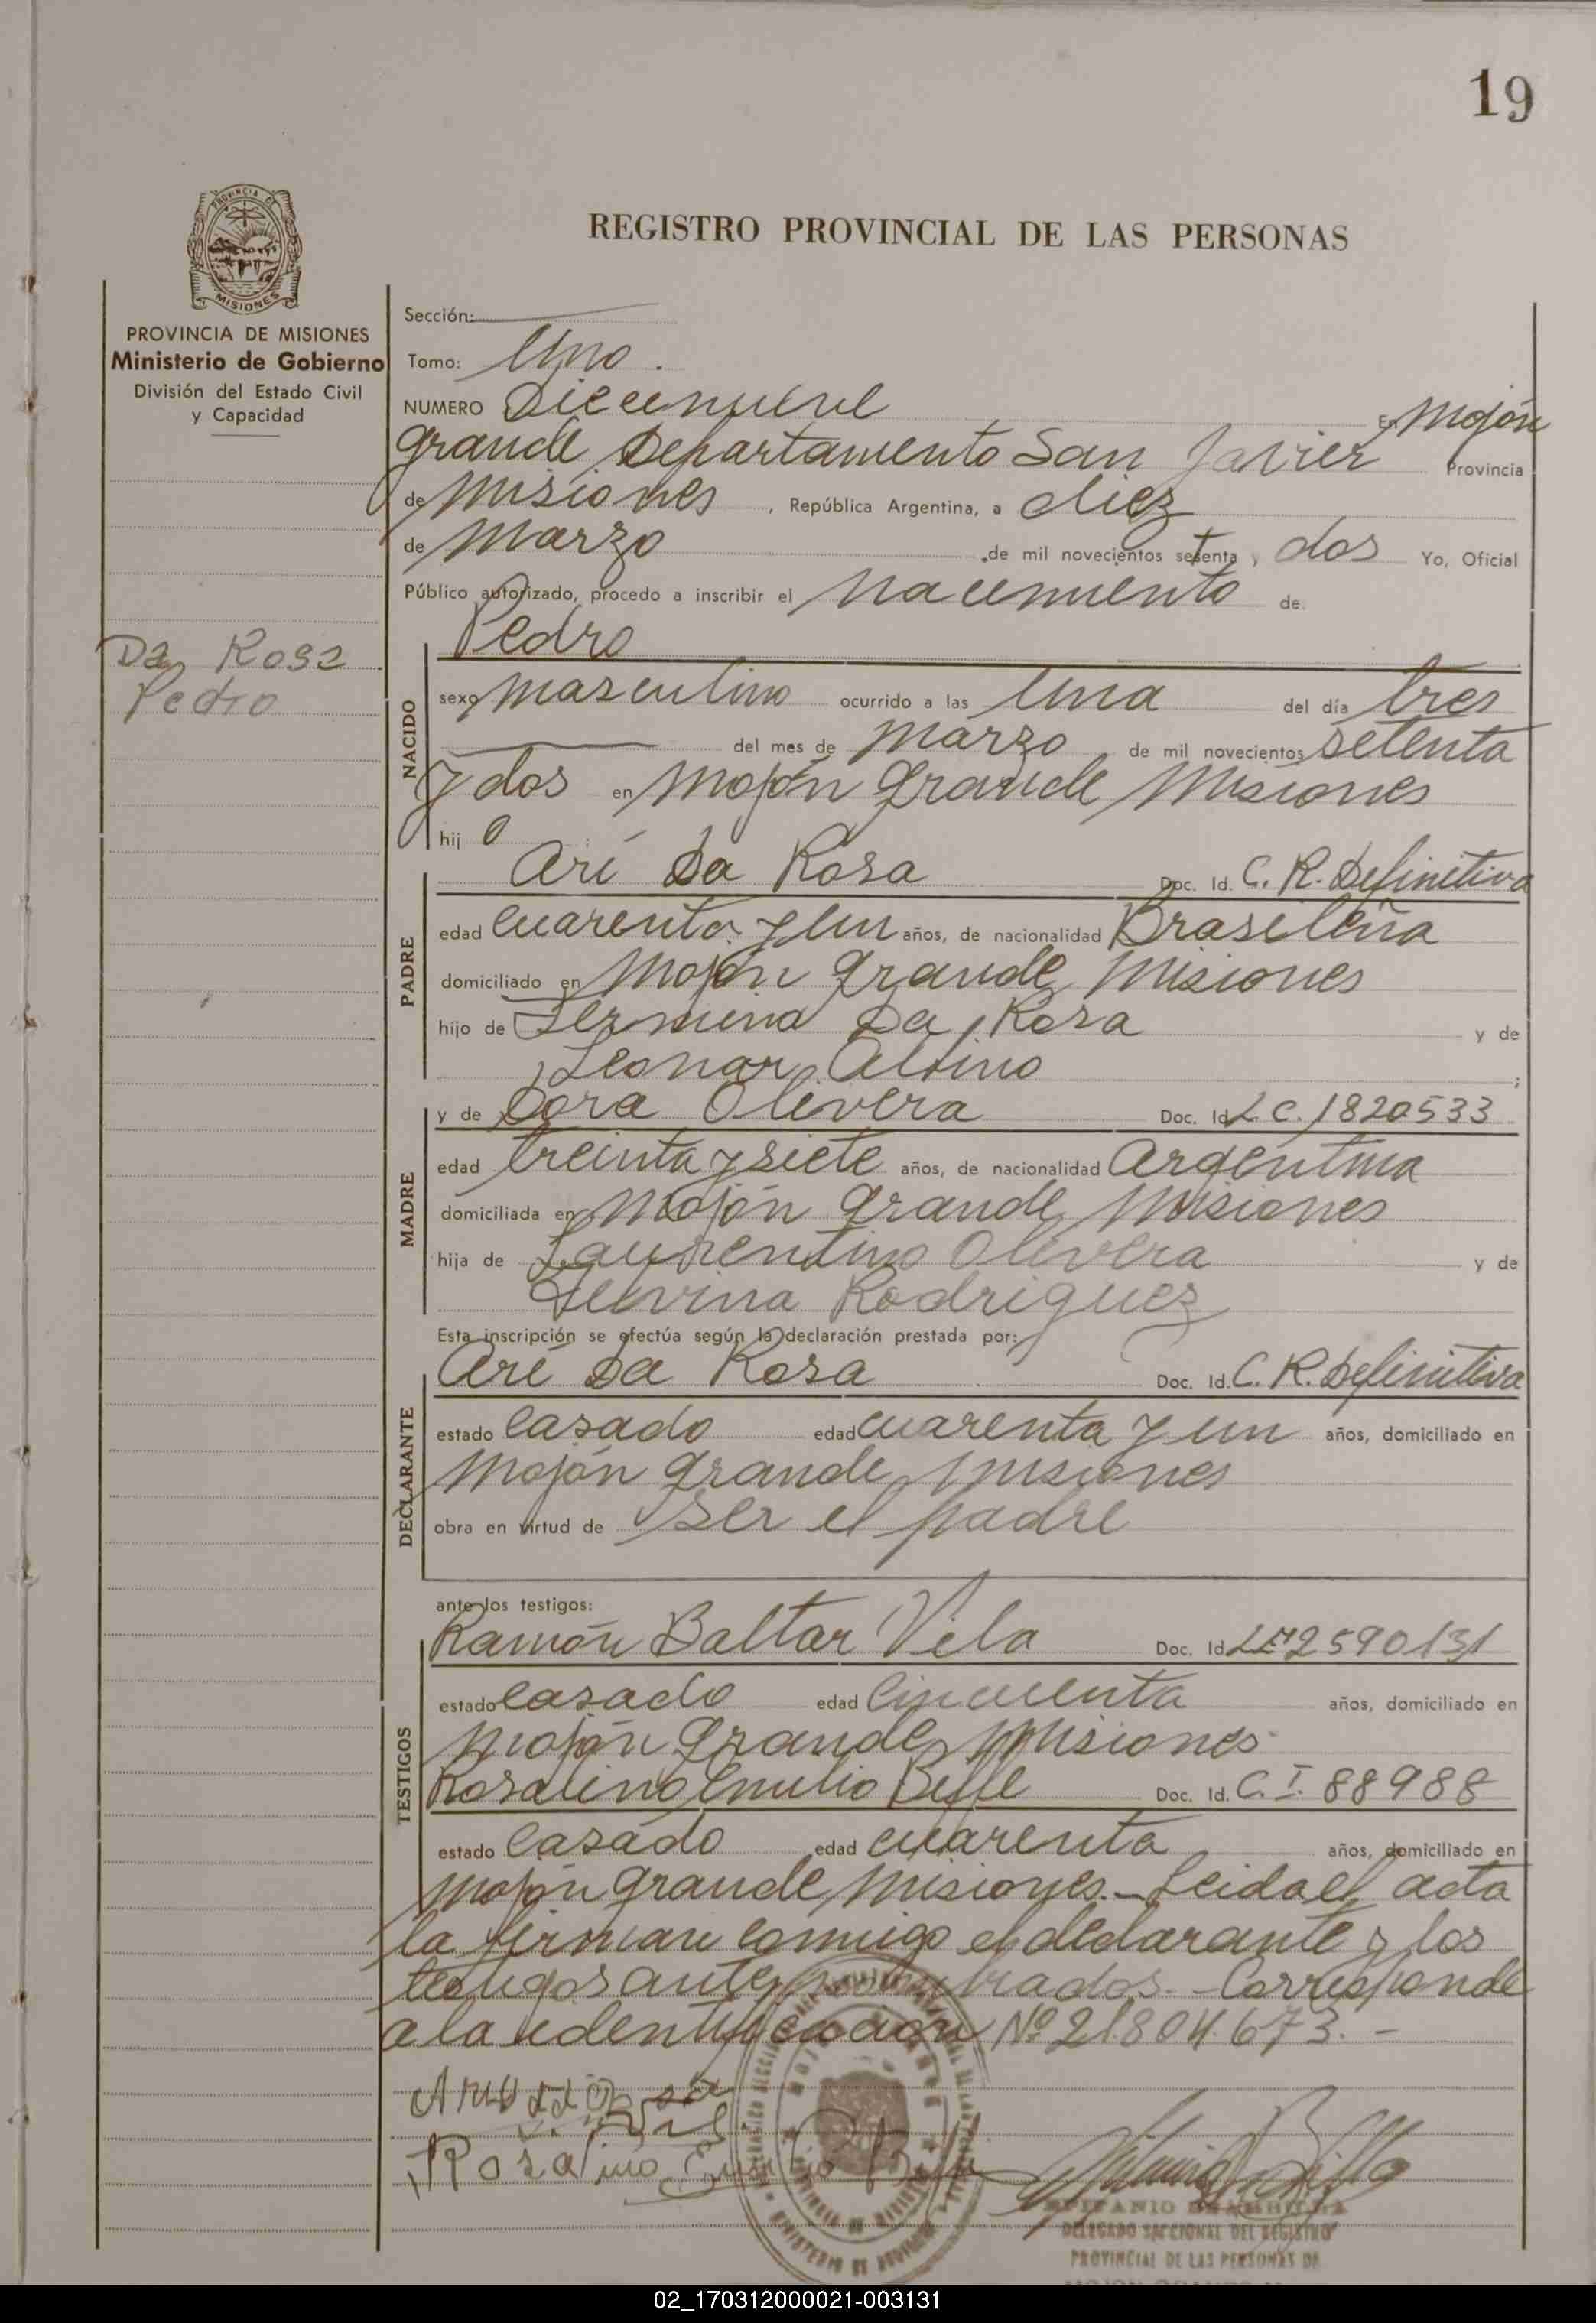 19
PROVINCIA DE
MISIONES
REGISTRO PROVINCIAL DE LAS PERSONAS
PROVINCIA DE MISIONES
Ministerio de Gobierno
División del Estado Civil
y Capacidad
Da Rosa
Pedro
Sección:
Tomo: Uno.
NUMERO Diecinueve En Mojón
Grande Departamento San Javier Provincia
de Misiones, República Argentina, a diez
de Marzo de mil novecientos setenta y dos Yo, Oficial
Público autorizado, procedo a inscribir el nacimiento de
Pedro
NACIDO
sexo masculino ocurrido a las Una del día tres
del mes de Marzo de mil novecientos setenta
y dos en Mojón Grande Misiones
hij o
Arí Da Rosa Doc. Id. C. R. Definitiva
PADRE
edad cuarenta y un años, de nacionalidad Brasileña
domiciliado en Mojón Grande Misiones
hijo de Da Rosa y de
Leonar ;
y de Dora Olivera Doc. Id L C. 1820533
MADRE
edad treinta y siete años, de nacionalidad Argentina
domiciliada en Mojón Grande Misiones
hija de Laurentino Olivera y de
Rodriguez
Esta inscripción se efectúa según la declaración prestada por:
Arí Da Rosa Doc. Id. C. R. Definitiva
DECLARANTE
estado Casado edad cuarenta y un años, domiciliado en
Mojón Grande, Misiones
obra en virtud de ser el padre
ante los testigos:
Ramón Baltar Vila Doc. Id 2590131
TESTIGOS
estado casado edad Cincuenta años, domiciliado en
Mojón Grande Misiones
Rosalino Emilio Doc. Id. C. I. 88988
estado Casado edad cuarenta años, domiciliado en
Mojón Grande, Misiones.- Leida el acta
la firman conmigo el declarante y los
testigos ante nombrados.- Corresponde
a la identificación Nº 21.804.673.-
Rosalino Emilio
DELEGADO SECCIONAL DEL REGISTRO
PROVINCIAL DE LAS PERSONAS DE
02_170312000021-003131